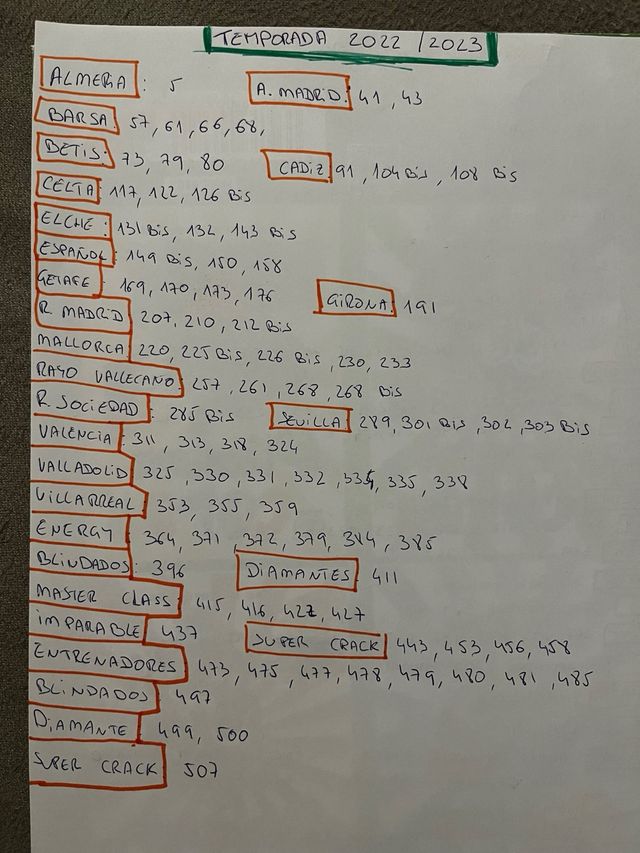 TEMPORADA 2022/2023
ALMERIA: 5 A. MADRID: 41, 43
BARSA: 57, 61, 66, 68,
BETIS: 73, 79, 80 CADIZ 91, 104 Bis, 108 Bis
CELTA: 117, 122, 126 Bis
ELCHE: 131 Bis, 132, 143 Bis
ESPAÑOL: 149 Bis, 150, 158
GETAFE: 169, 170, 173, 176 GIRONA: 191
R. MADRID 207, 210, 212 Bis
MALLORCA 220, 225 Bis, 226 Bis, 230, 233
RAYO VALLECANO 257, 261, 268, 268 Bis
R. SOCIEDAD: 285 Bis SEVILLA 289, 301 Bis, 302, 303 Bis
VALENCIA: 311, 313, 318, 324
VALLADOLID 325, 330, 331, 332, 334, 335, 338
VILLARREAL 353, 355, 359
ENERGY 364, 371, 372, 379, 384, 385
BLINDADOS: 396 DIAMANTES 411
MASTER CLASS 415, 416, 422, 427
IMPARABLE 437 SUPER CRACK 443, 453, 456, 458
ENTRENADORES 473, 475, 477, 478, 479, 480, 481, 485
BLINDADOS 497
DIAMANTE 499, 500
SUPER CRACK 507